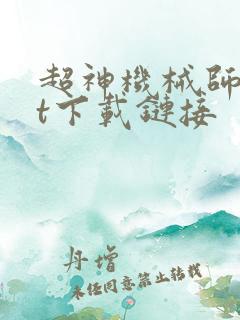 超神機械師
t下載鏈接
丹增
未经同意禁止转载